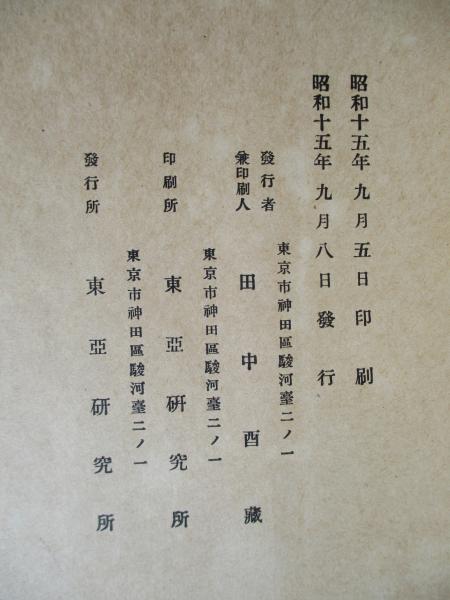 昭和十五年九月五日印刷
昭和十五年九月八日發行
東京市神田區駿河臺二ノ一
發行者
兼印刷人
田中酉藏
東京市神田區駿河臺二ノ一
印刷所
東亞研究所
東京市神田區駿河臺二ノ一
發行所
東亞研究所